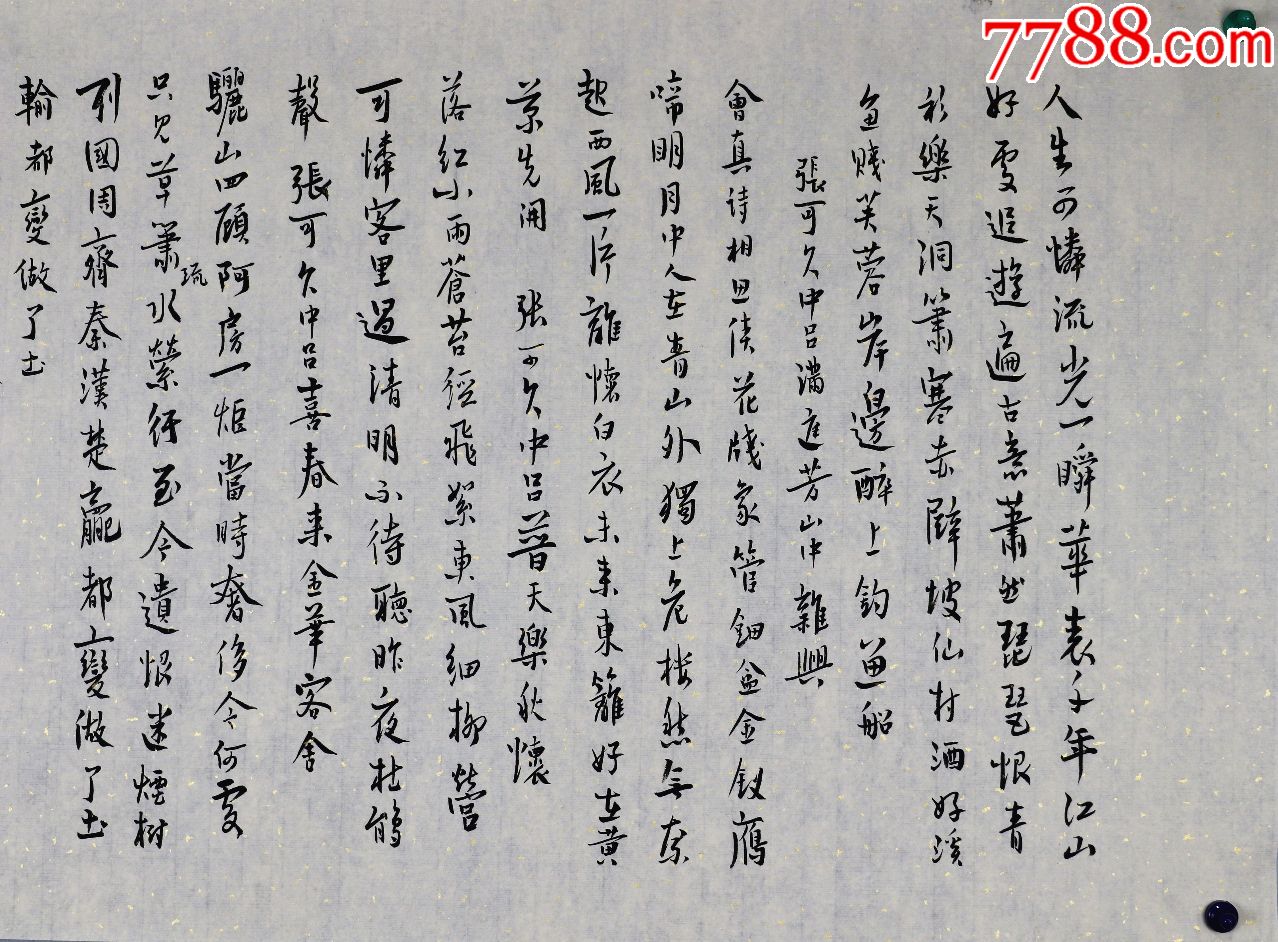 7788.com
人生可憐流光一瞬華表千年江山
好處追遊遍古意蕭然琵琶恨青
衫樂天洞簫寒赤壁坡仙村酒好溪
魚賤芙蓉岸邊醉上釣魚船
張可久中呂滿庭芳山中雜興
會真詩相思債花牋象管鈿盒金釵雁
啼明月中人在青山外獨上危樓愁無奈
起西風一片離懷白衣未來東籬好在黃
菊先開 張可久中呂普天樂秋懷
落紅小雨蒼苔徑飛絮東風細柳營
可憐客里過清明不待聽昨夜杜鵑
聲 張可久中呂喜春來金華客舍
驪山四顧阿房一炬當時奢侈今何處
只見草簫疏水縈紆至今遺恨迷煙樹
列國周齊秦漢楚贏都變做了土
輸都變做了土